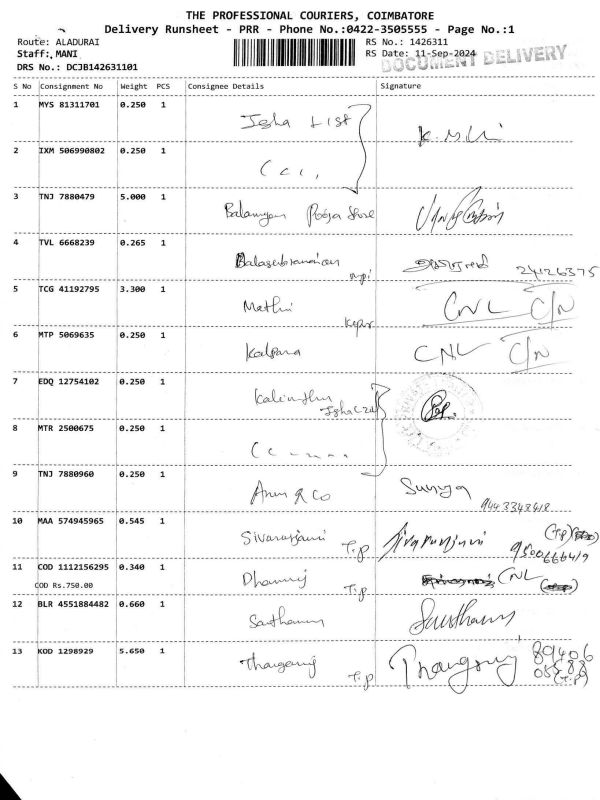 THE PROFESSIONAL COURIERS, COIMBATORE
Delivery Runsheet - PRR - Phone No.:0422-3505555 - Page No.:1
Route: ALADURAI RS No.: 1426311
Staff: MANI RS Date: 11-Sep-2024 DOCUMENT DELIVERY
DRS No.: DCJB142631101
S No Consignment No Weight PCS Consignee Details Signature
1 MYS 81311701 0.250 1
Isha
2 IXM 506990802 0.250 1
3 TNJ 7880479 5.000 1
Pooja Store
4 TVL 6668239 0.265 1
Balasubramanian 24126375
5 TCG 41192795 3.300 1
Mathi CNL C/N
6 MTP 5069635 0.250 1
Kalpana CNL C/N
7 EDQ 12754102 0.250 1
Isha
8 MTR 2500675 0.250 1
9 TNJ 7880960 0.250 1
Arun & Co Surya
10 MAA 574945965 0.545 1
Sivaranjani T.P Sivaranjani (T.P)
11 COD 1112156295 0.340 1
COD Rs.750.00
Dhanraj T.P CNL
12 BLR 4551884482 0.660 1
13 KOD 1298929 5.650 1
Thangaraj T.P Thangaraj 89406
(T.P)